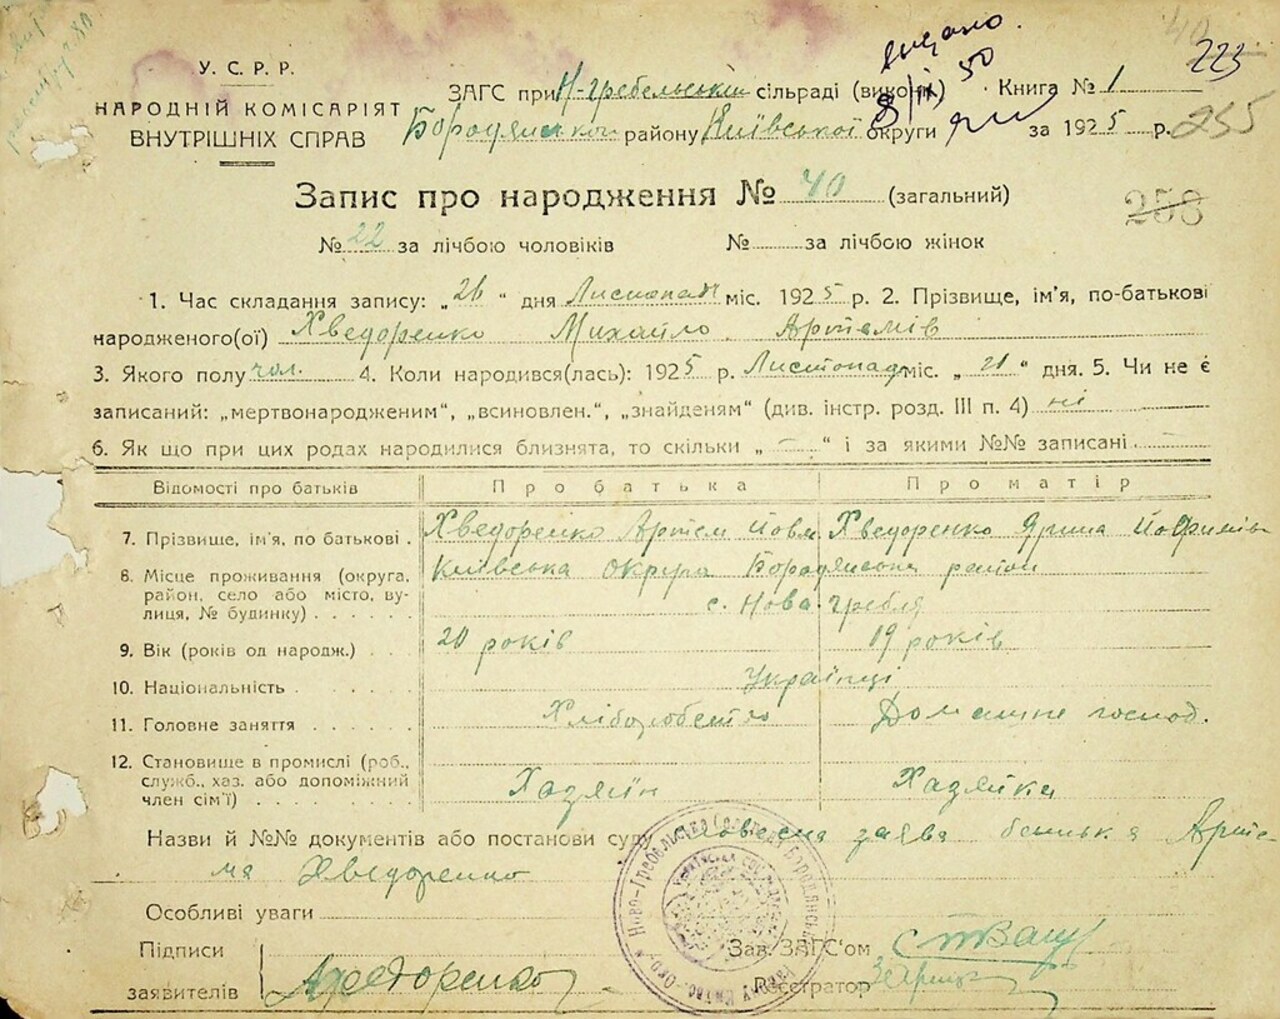 видано.
40
223
У.С.Р.Р.
НАРОДНІЙ КОМІСАРІЯТ
ВНУТРІШНІХ СПРАВ
ЗАГС при Н-Гребельській сільраді (викон.) Книга № 1
Бородянськог району Київської округи за 1925 р.
255
Запис про народження № 40 (загальний)
258
№ 22 за лічбою чоловіків № за лічбою жінок
1. Час складання запису: „26" дня Листопад міс. 1925 р. 2. Прізвище, ім'я, по-батькові
народженого(ої) Хведоренко Михайло Артемів
3. Якого полу чол. 4. Коли народився(лась): 1925 р. Листопад міс. „21" дня. 5. Чи не є
записаний: „мертвонародженим", „всиновлен.", „знайденям" (див. інстр. розд. III п. 4) ні
6. Як що при цих родах народилися близнята, то скільки „—" і за якими №№ записані —
Відомості про батьків Про батька Про матір
7. Прізвище, ім'я, по батькові . Хведоренко Артем Йовм Хведоренко Ярина
8. Місце проживання (округа, район, село або місто, вулиця, № будинку) Київська округа Бородянська район
с. Нова-Гребля
9. Вік (років од народж.) 20 років 19 років
10. Національність Українці
11. Головне заняття Хліборобство Домашне господ.
12. Становище в промислі (роб., служб., хаз. або допоміжний член сім'ї) Хазяїн Хазяйка
Назви й №№ документів або постанови суду Словесна заява батька Арте-
ма Хведоренко
Особливі уваги
Підписи
заявителів
АХведоренко
Зав. ЗАГС'ом
Реєстратор